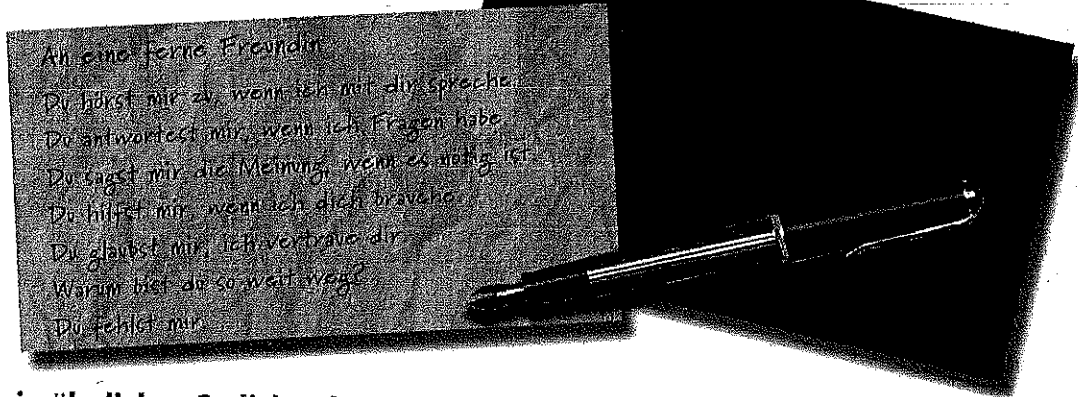 An eine ferne Freundin
Du hörst mir zu, wenn ich mit dir spreche.
Du antwortest mir, wenn ich Fragen habe.
Du sagst mir die Meinung, wenn es nötig ist.
Du hilfst mir, wenn ich dich brauche.
Du glaubst mir, ich vertraue dir.
Warum bist du so weit weg?
Du fehlst mir.